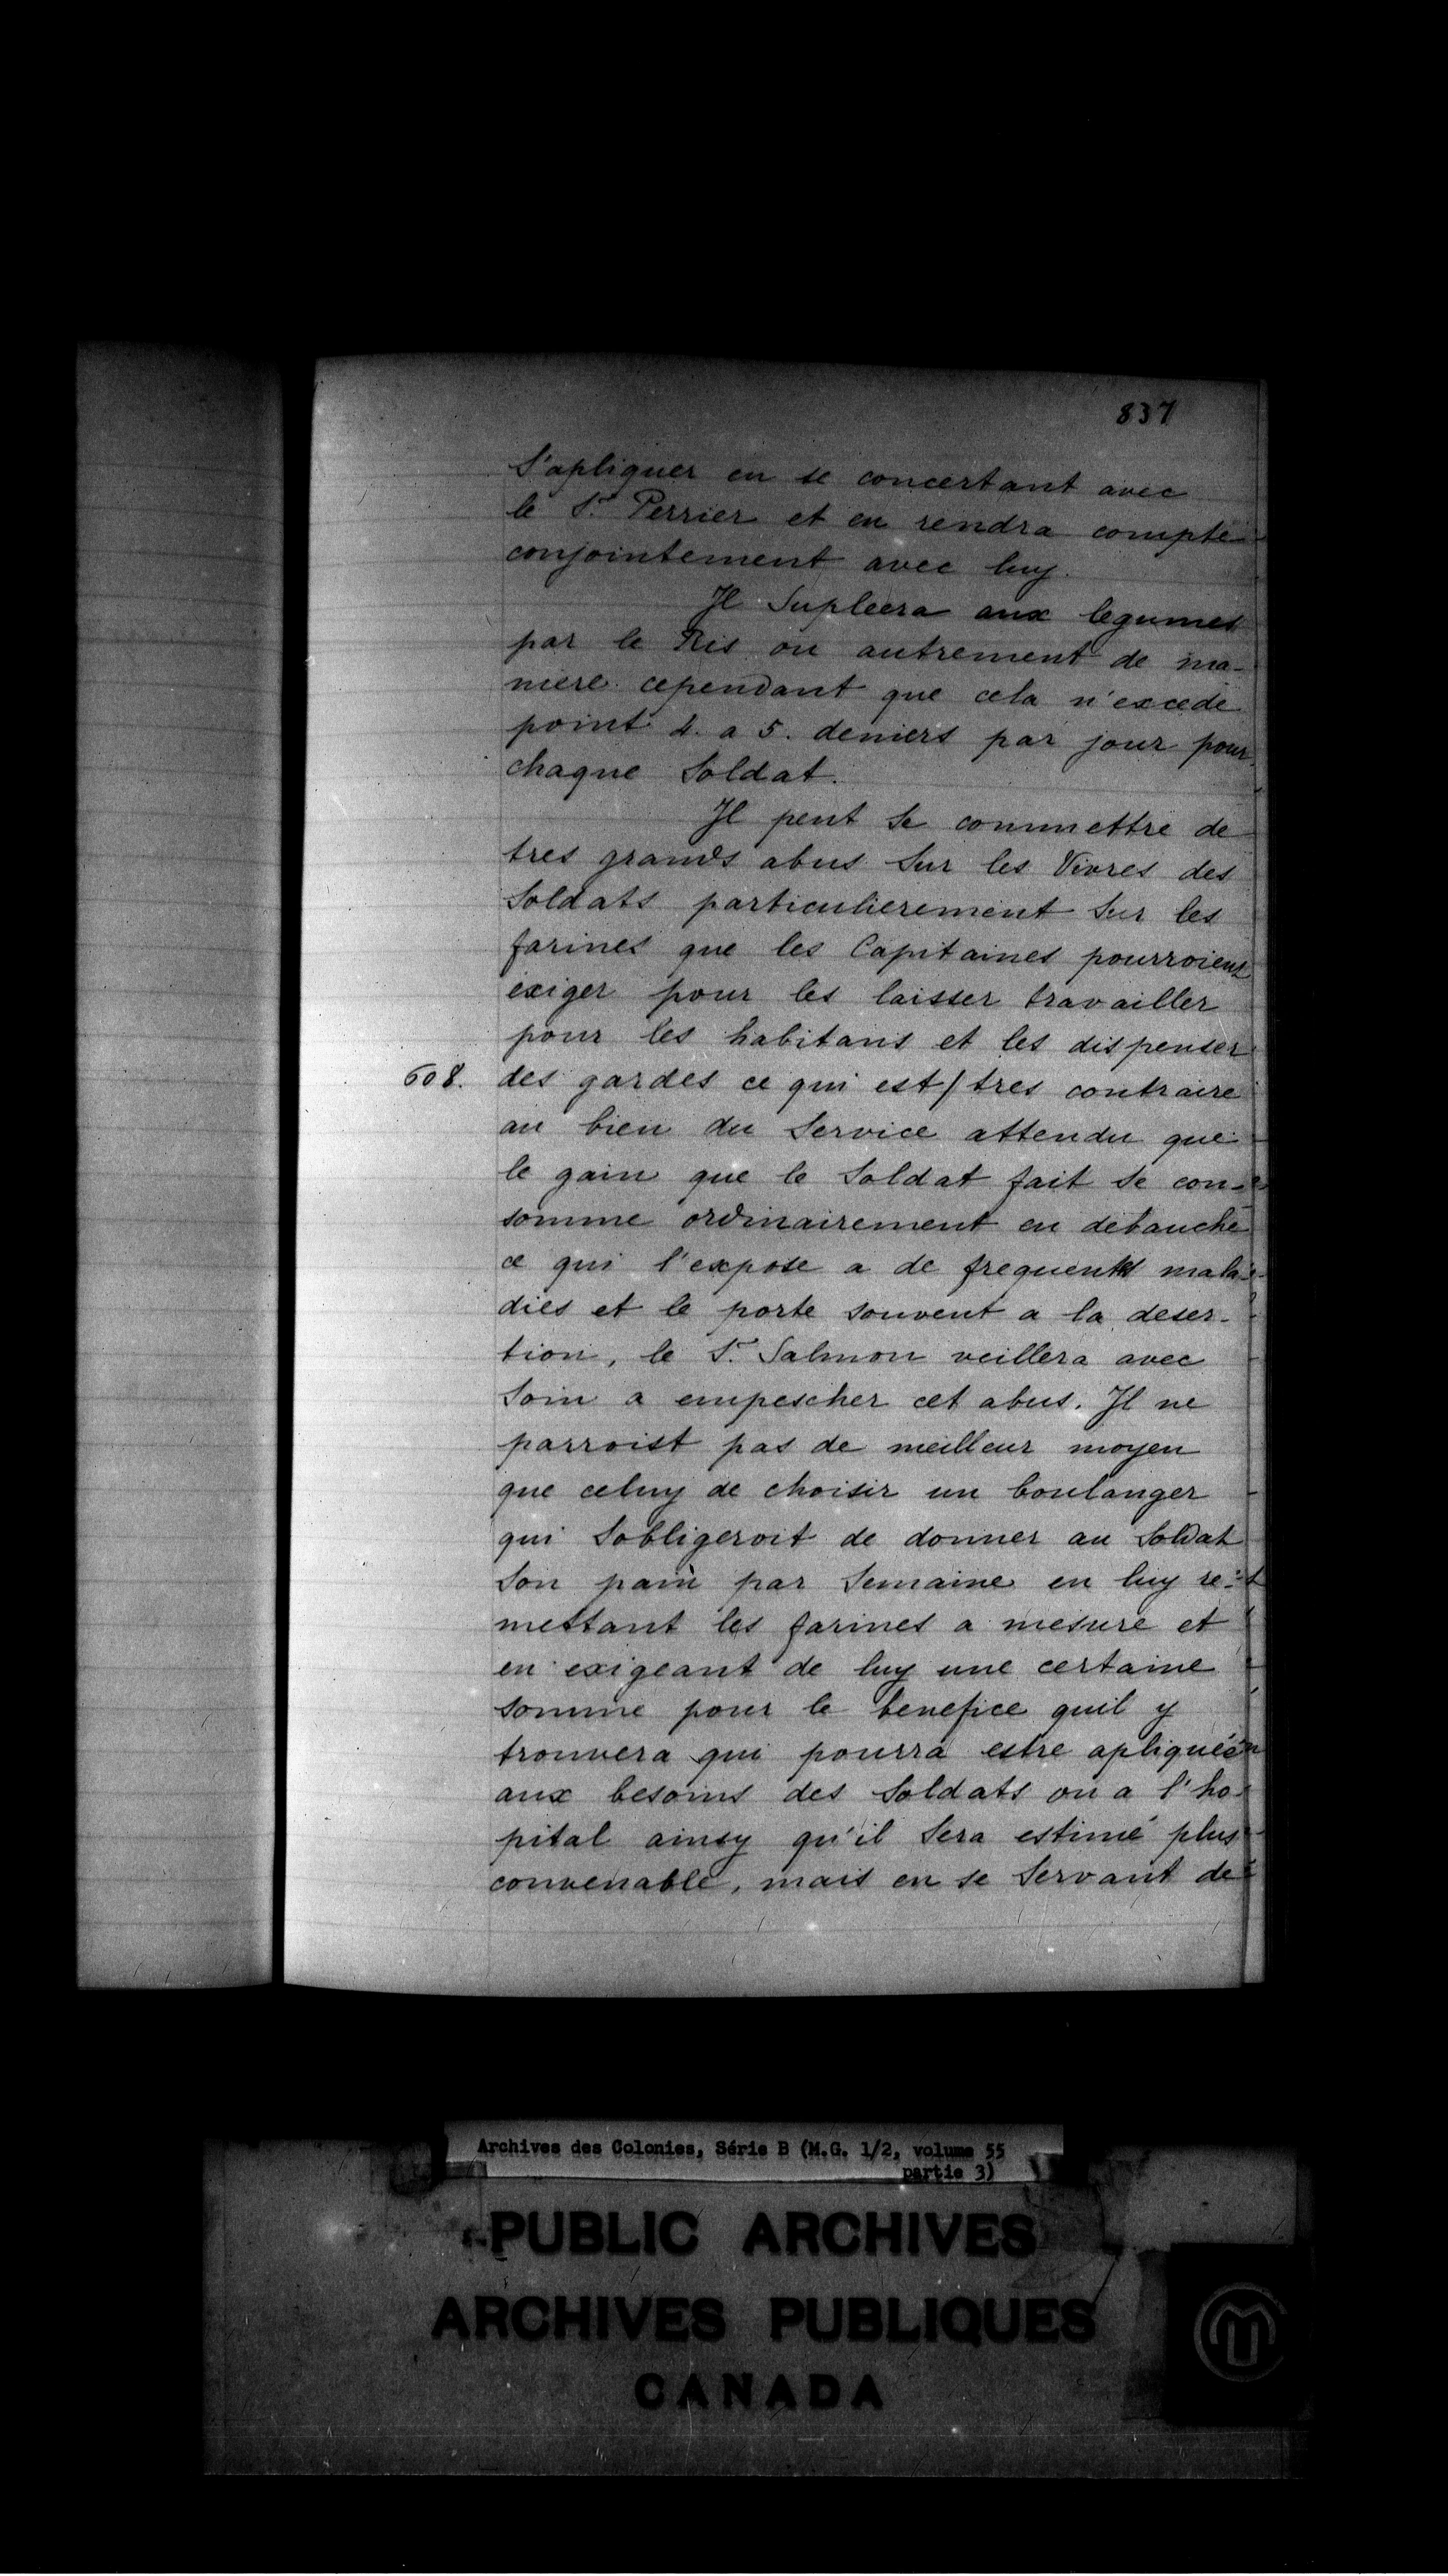 837
S'apliquer en se concertant avec
le Sr. Perrier et en rendra compte
conjointement avec luy.
Il Supleera aux legumes
par le Ris ou autrement de ma-
niere cependant que cela n'excede
point 4. a 5. deniers par jour pour
chaque Soldat.
Il peut Se commettre de
tres grands abus Sur les Vivres des
Soldats particulierement Sur les
farines que les Capitaines pourroient
exiger pour les laisser travailler
pour les habitans et les dispenser
608. des gardes ce qui est/tres contraire
au bien du Service attendu que
le gain que le Soldat fait se con-
somme ordinairement en debauche
ce qui l'expose a de frequentes mala-
dies et le porte souvent a la deser-
tion, le Sr. Salmon veillera avec
Soin a empescher cet abus. Il ne
parroist pas de meilleur moyen
que celuy de choisir un boulanger
qui Sobligeroit de donner au Soldat
Son pain par Semaine en luy re-
mettant les farines a mesure et
en exigeant de luy une certaine
somme pour le benefice quil y
trouvera qui pourra estre apliquée
aux besoins des Soldats ou a l'ho-
pital ainsy qu'il Sera estimé plus
convenable, mais en se Servant de
Archives des Colonies, Série B (M.G. 1/2, volume 55
partie 3)
PUBLIC ARCHIVES
ARCHIVES PUBLIQUES
CANADA